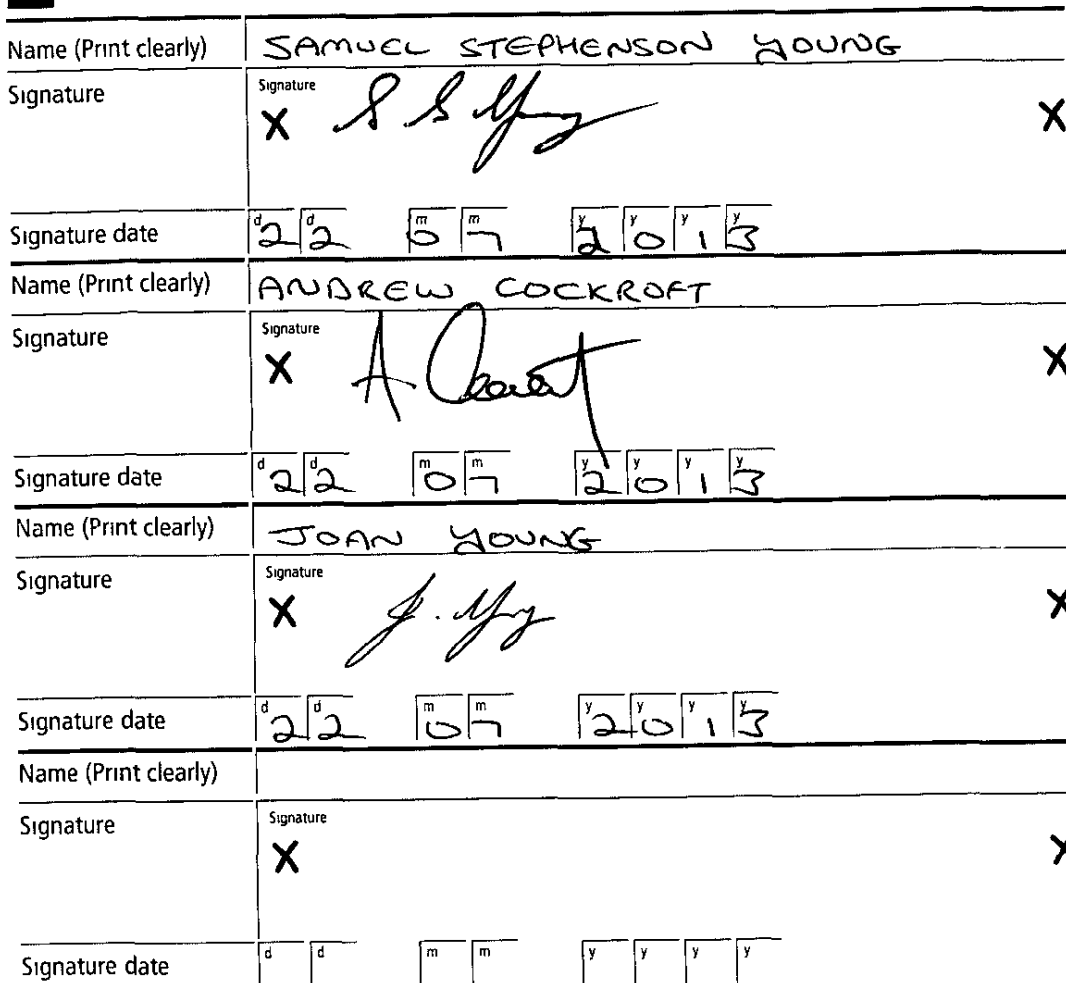 Name (Print clearly) SAMUEL STEPHENSON YOUNG
Signature
Signature
X S S Young X
Signature date d2 d2 m0 m7 y2 y0 y1 y3
Name (Print clearly) ANDREW COCKROFT
Signature
Signature
X A X
Signature date d2 d2 m0 m7 y2 y0 y1 y3
Name (Print clearly) JOAN YOUNG
Signature
Signature
X J. Young X
Signature date d2 d2 m0 m7 y2 y0 y1 y3
Name (Print clearly)
Signature
Signature
X X
Signature date d d m m y y y y